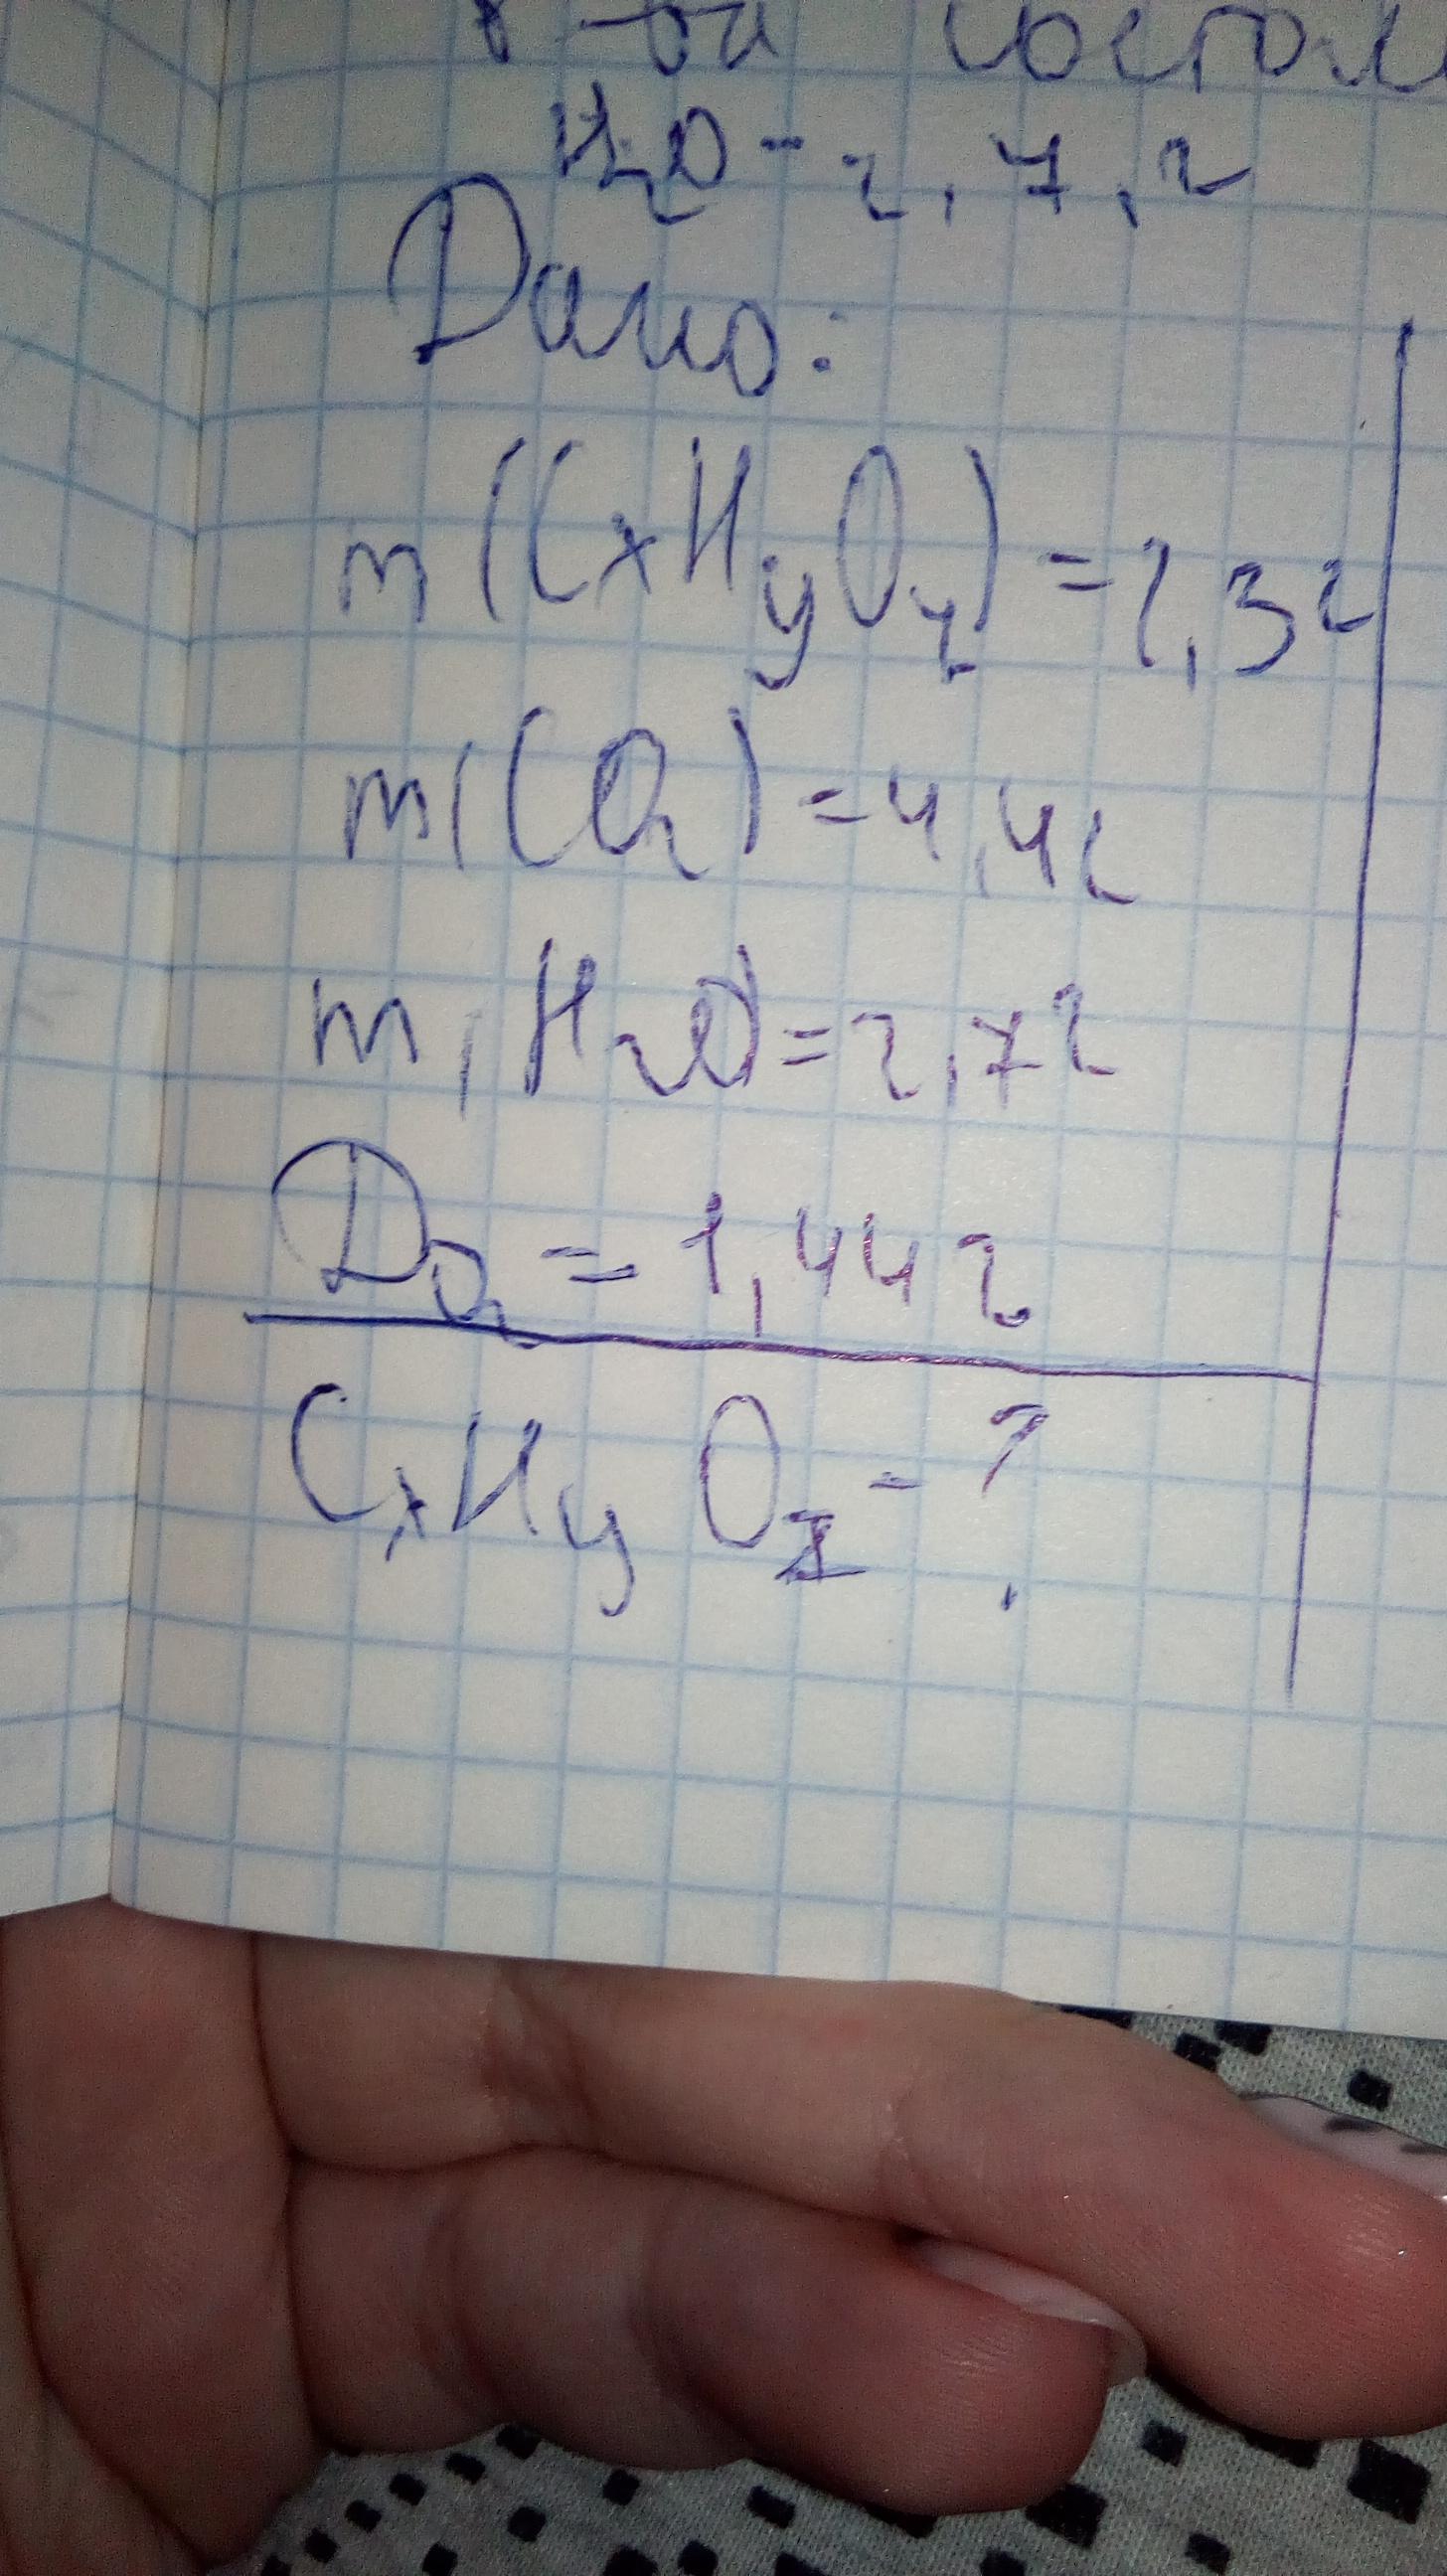 H₂O - 2,7 г
Дано:
m(CxHyOz) = 2,3 г
m(CO₂) = 4,4 г
m(H₂O) = 2,7 г
D O₂ = 1,44 г
CxHyOz - ?